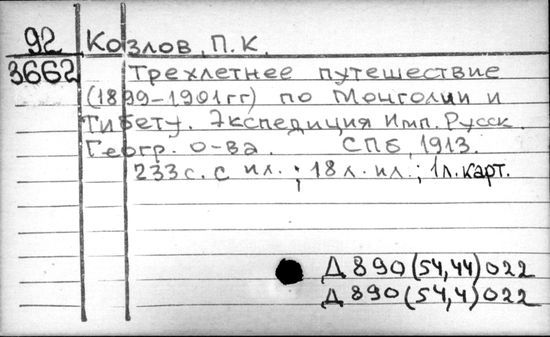 92 Козлов, П.К.
3662 Трехлетнее путешествие
(1899-1901гг) по Монголии и
Тибету. Экспедиция Имп. Русск.
Геогр. о-ва. СПб, 1913.
233 с. с ил.; 18 л. ил.; 1 л. карт.
Д 890(54,44)022
Д 890(54,4)022